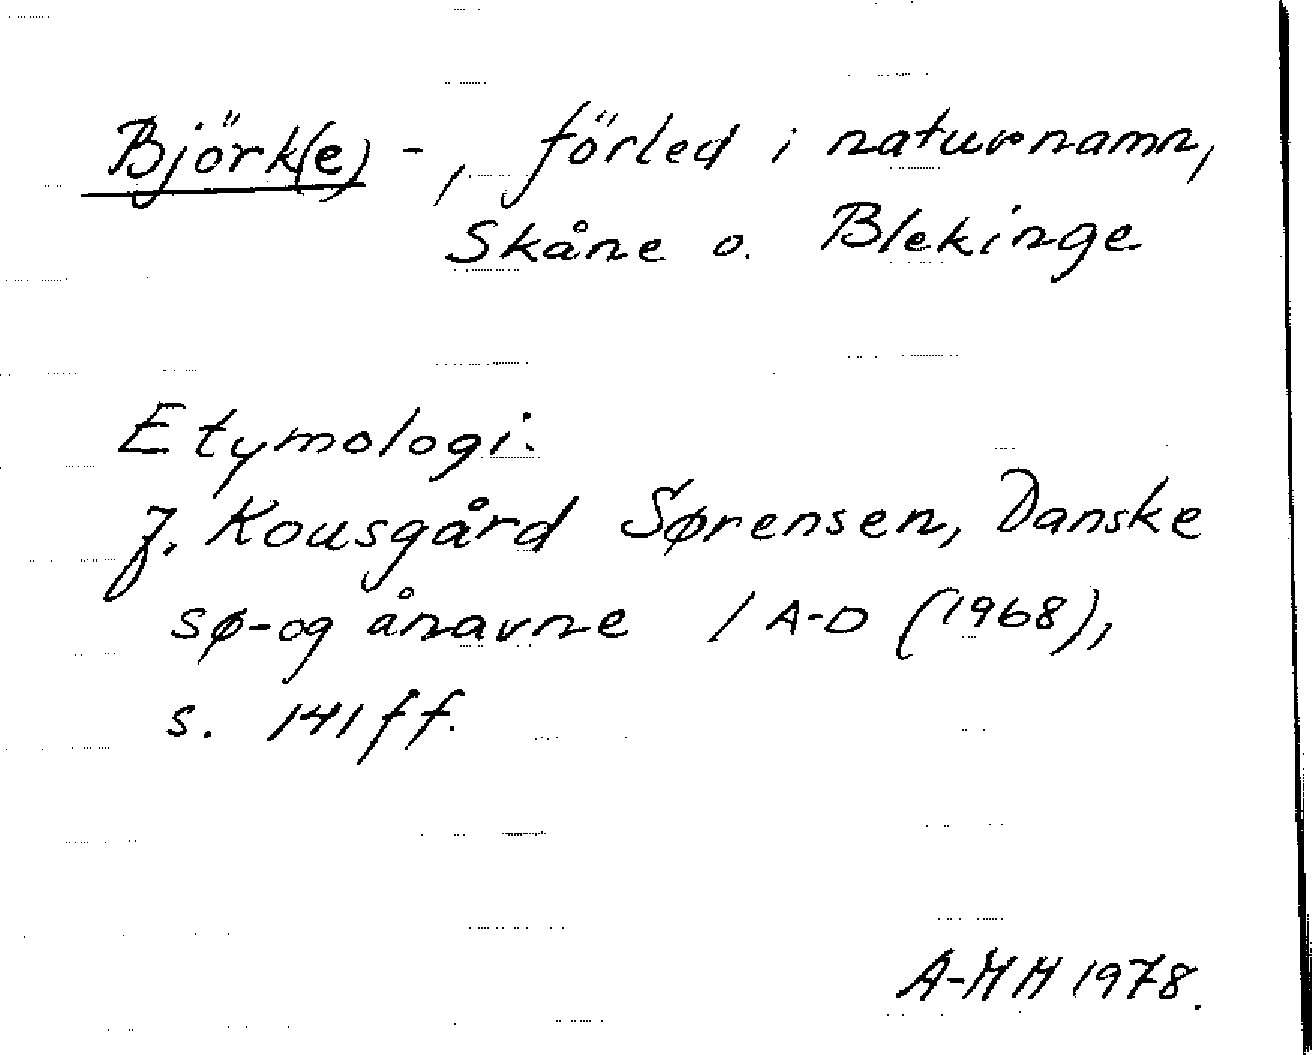 Björk(e)-, förled i naturnamn,
Skåne o. Blekinge
Etymologi.
J. Kousgård Sørensen, Danske
sø- og ånavne 1 A-D (1968),
s. 141 ff.
A-MH 1978.